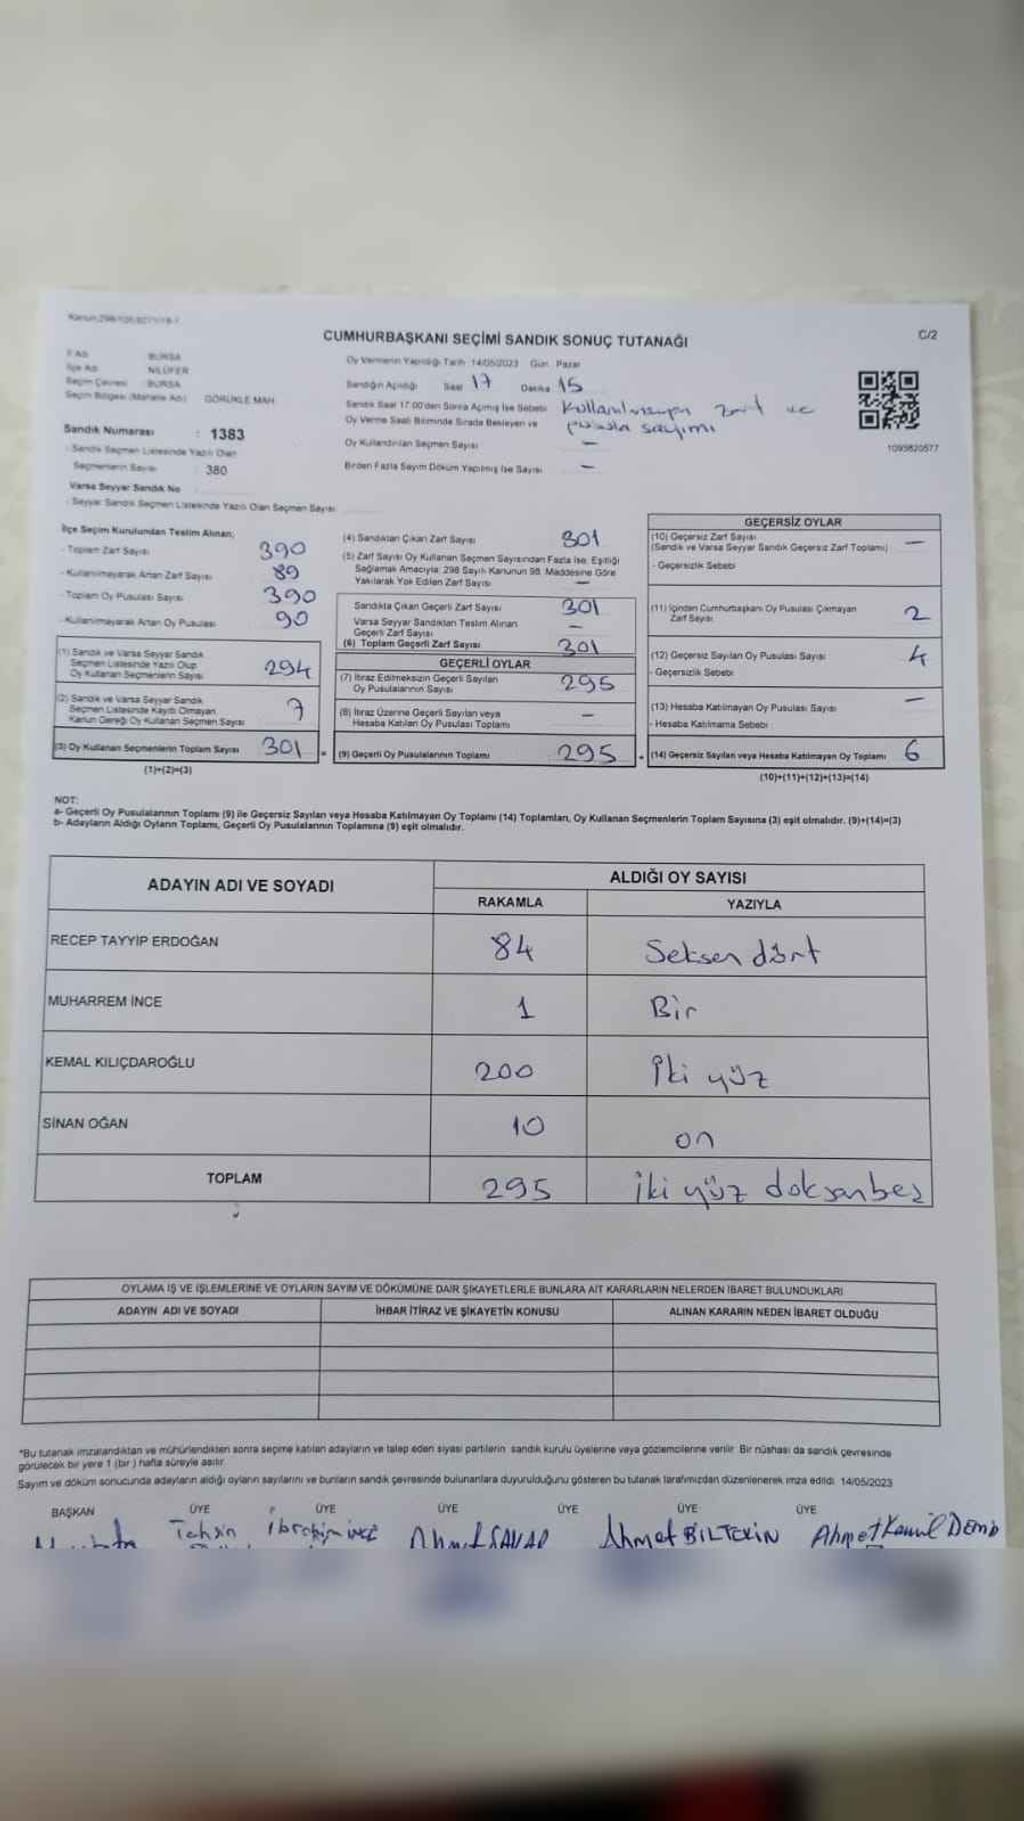 CUMHURBAŞKANI SEÇİMİ SANDIK SONUÇ TUTANAĞI
C/2
İl Adı BURSA
İlçe Adı NİLÜFER
Seçim Çevresi BURSA
Seçim Bölgesi (Mahalle Adı) GÖRÜKLE MAH.
Sandık Numarası : 1383
- Sandık Seçmen Listesinde Yazılı Olan
Seçmenlerin Sayısı 380
Varsa Seyyar Sandık No
- Seyyar Sandık Seçmen Listesinde Yazılı Olan Seçmen Sayısı
Oy Vermenin Yapıldığı Tarih 14/05/2023 Gün Pazar
Sandığın Açıldığı Saat 17 Dakika 15
Sandık Saat 17.00'den Sonra Açmış İse Sebebi Kullanılmayan zarf ve
pusula sayımı
Oy Verme Saati Bitiminde Sırada Bekleyen ve
Oy Kullandırılan Seçmen Sayısı —
Birden Fazla Sayım Döküm Yapılmış İse Sayısı —
1095820577
İlçe Seçim Kurulundan Teslim Alınan;
- Toplam Zarf Sayısı 390
- Kullanılmayarak Artan Zarf Sayısı 89
- Toplam Oy Pusulası Sayısı 390
- Kullanılmayarak Artan Oy Pusulası 90
(1) Sandık ve Varsa Seyyar Sandık
Seçmen Listesinde Yazılı Olup
Oy Kullanan Seçmenlerin Sayısı 294
(2) Sandık ve Varsa Seyyar Sandık
Seçmen Listesinde Kayıtlı Olmayan,
Kanun Gereği Oy Kullanan Seçmen Sayısı 7
(3) Oy Kullanan Seçmenlerin Toplam Sayısı 301 =
(1)+(2)=(3)
(4) Sandıktan Çıkan Zarf Sayısı 301
(5) Zarf Sayısı Oy Kullanan Seçmen Sayısından Fazla İse, Eşitliği
Sağlamak Amacıyla; 298 Sayılı Kanunun 98. Maddesine Göre
Yakılarak Yok Edilen Zarf Sayısı —
Sandıkta Çıkan Geçerli Zarf Sayısı 301
Varsa Seyyar Sandıktan Teslim Alınan
Geçerli Zarf Sayısı —
(6) Toplam Geçerli Zarf Sayısı 301
GEÇERLİ OYLAR
(7) İtiraz Edilmeksizin Geçerli Sayılan
Oy Pusulalarının Sayısı 295
(8) İtiraz Üzerine Geçerli Sayılan veya
Hesaba Katılan Oy Pusulası Toplamı —
(9) Geçerli Oy Pusulalarının Toplamı 295 +
GEÇERSİZ OYLAR
(10) Geçersiz Zarf Sayısı
(Sandık ve Varsa Seyyar Sandık Geçersiz Zarf Toplamı) —
- Geçersizlik Sebebi
(11) İçinden Cumhurbaşkanı Oy Pusulası Çıkmayan
Zarf Sayısı 2
(12) Geçersiz Sayılan Oy Pusulası Sayısı 4
- Geçersizlik Sebebi
(13) Hesaba Katılmayan Oy Pusulası Sayısı —
- Hesaba Katılmama Sebebi
(14) Geçersiz Sayılan veya Hesaba Katılmayan Oy Toplamı 6
(10)+(11)+(12)+(13)=(14)
NOT:
a- Geçerli Oy Pusulalarının Toplamı (9) ile Geçersiz Sayılan veya Hesaba Katılmayan Oy Toplamı (14) Toplamları, Oy Kullanan Seçmenlerin Toplam Sayısına (3) eşit olmalıdır. (9)+(14)=(3)
b- Adayların Aldığı Oyların Toplamı, Geçerli Oy Pusulalarının Toplamına (9) eşit olmalıdır.
ADAYIN ADI VE SOYADI
ALDIĞI OY SAYISI
RAKAMLA YAZIYLA
RECEP TAYYİP ERDOĞAN 84 Seksen dört
MUHARREM İNCE 1 Bir
KEMAL KILIÇDAROĞLU 200 İki yüz
SİNAN OĞAN 10 on
TOPLAM 295 iki yüz doksanbeş
OYLAMA İŞ VE İŞLEMLERİNE VE OYLARIN SAYIM VE DÖKÜMÜNE DAİR ŞİKAYETLERLE BUNLARA AİT KARARLARIN NELERDEN İBARET BULUNDUKLARI
ADAYIN ADI VE SOYADI İHBAR İTİRAZ VE ŞİKAYETİN KONUSU ALINAN KARARIN NEDEN İBARET OLDUĞU
*Bu tutanak imzalandıktan ve mühürlendikten sonra seçime katılan adayların ve talep eden siyasi partilerin sandık kurulu üyelerine veya gözlemcilerine verilir. Bir nüshası da sandık çevresinde
görülecek bir yere 1 (bir) hafta süreyle asılır.
Sayım ve döküm sonucunda adayların aldığı oyların sayılarını ve bunların sandık çevresinde bulunanlara duyurulduğunu gösteren bu tutanak tarafımızdan düzenlenerek imza edildi. 14/05/2023
BAŞKAN ÜYE ÜYE ÜYE ÜYE ÜYE ÜYE
Tahsin İbrahim ince Ahmet Ahmet BİLTEKİN Ahmet Kamil